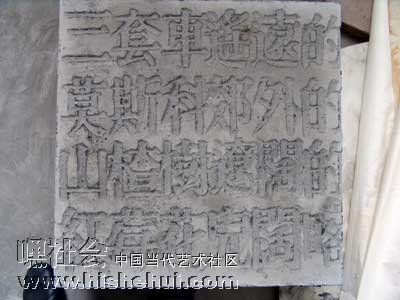 三套車遙遠的
莫斯科郊外的
山楂樹遼闊的
紅莓
嘿社会 中国当代艺术社区
www.hishehui.com